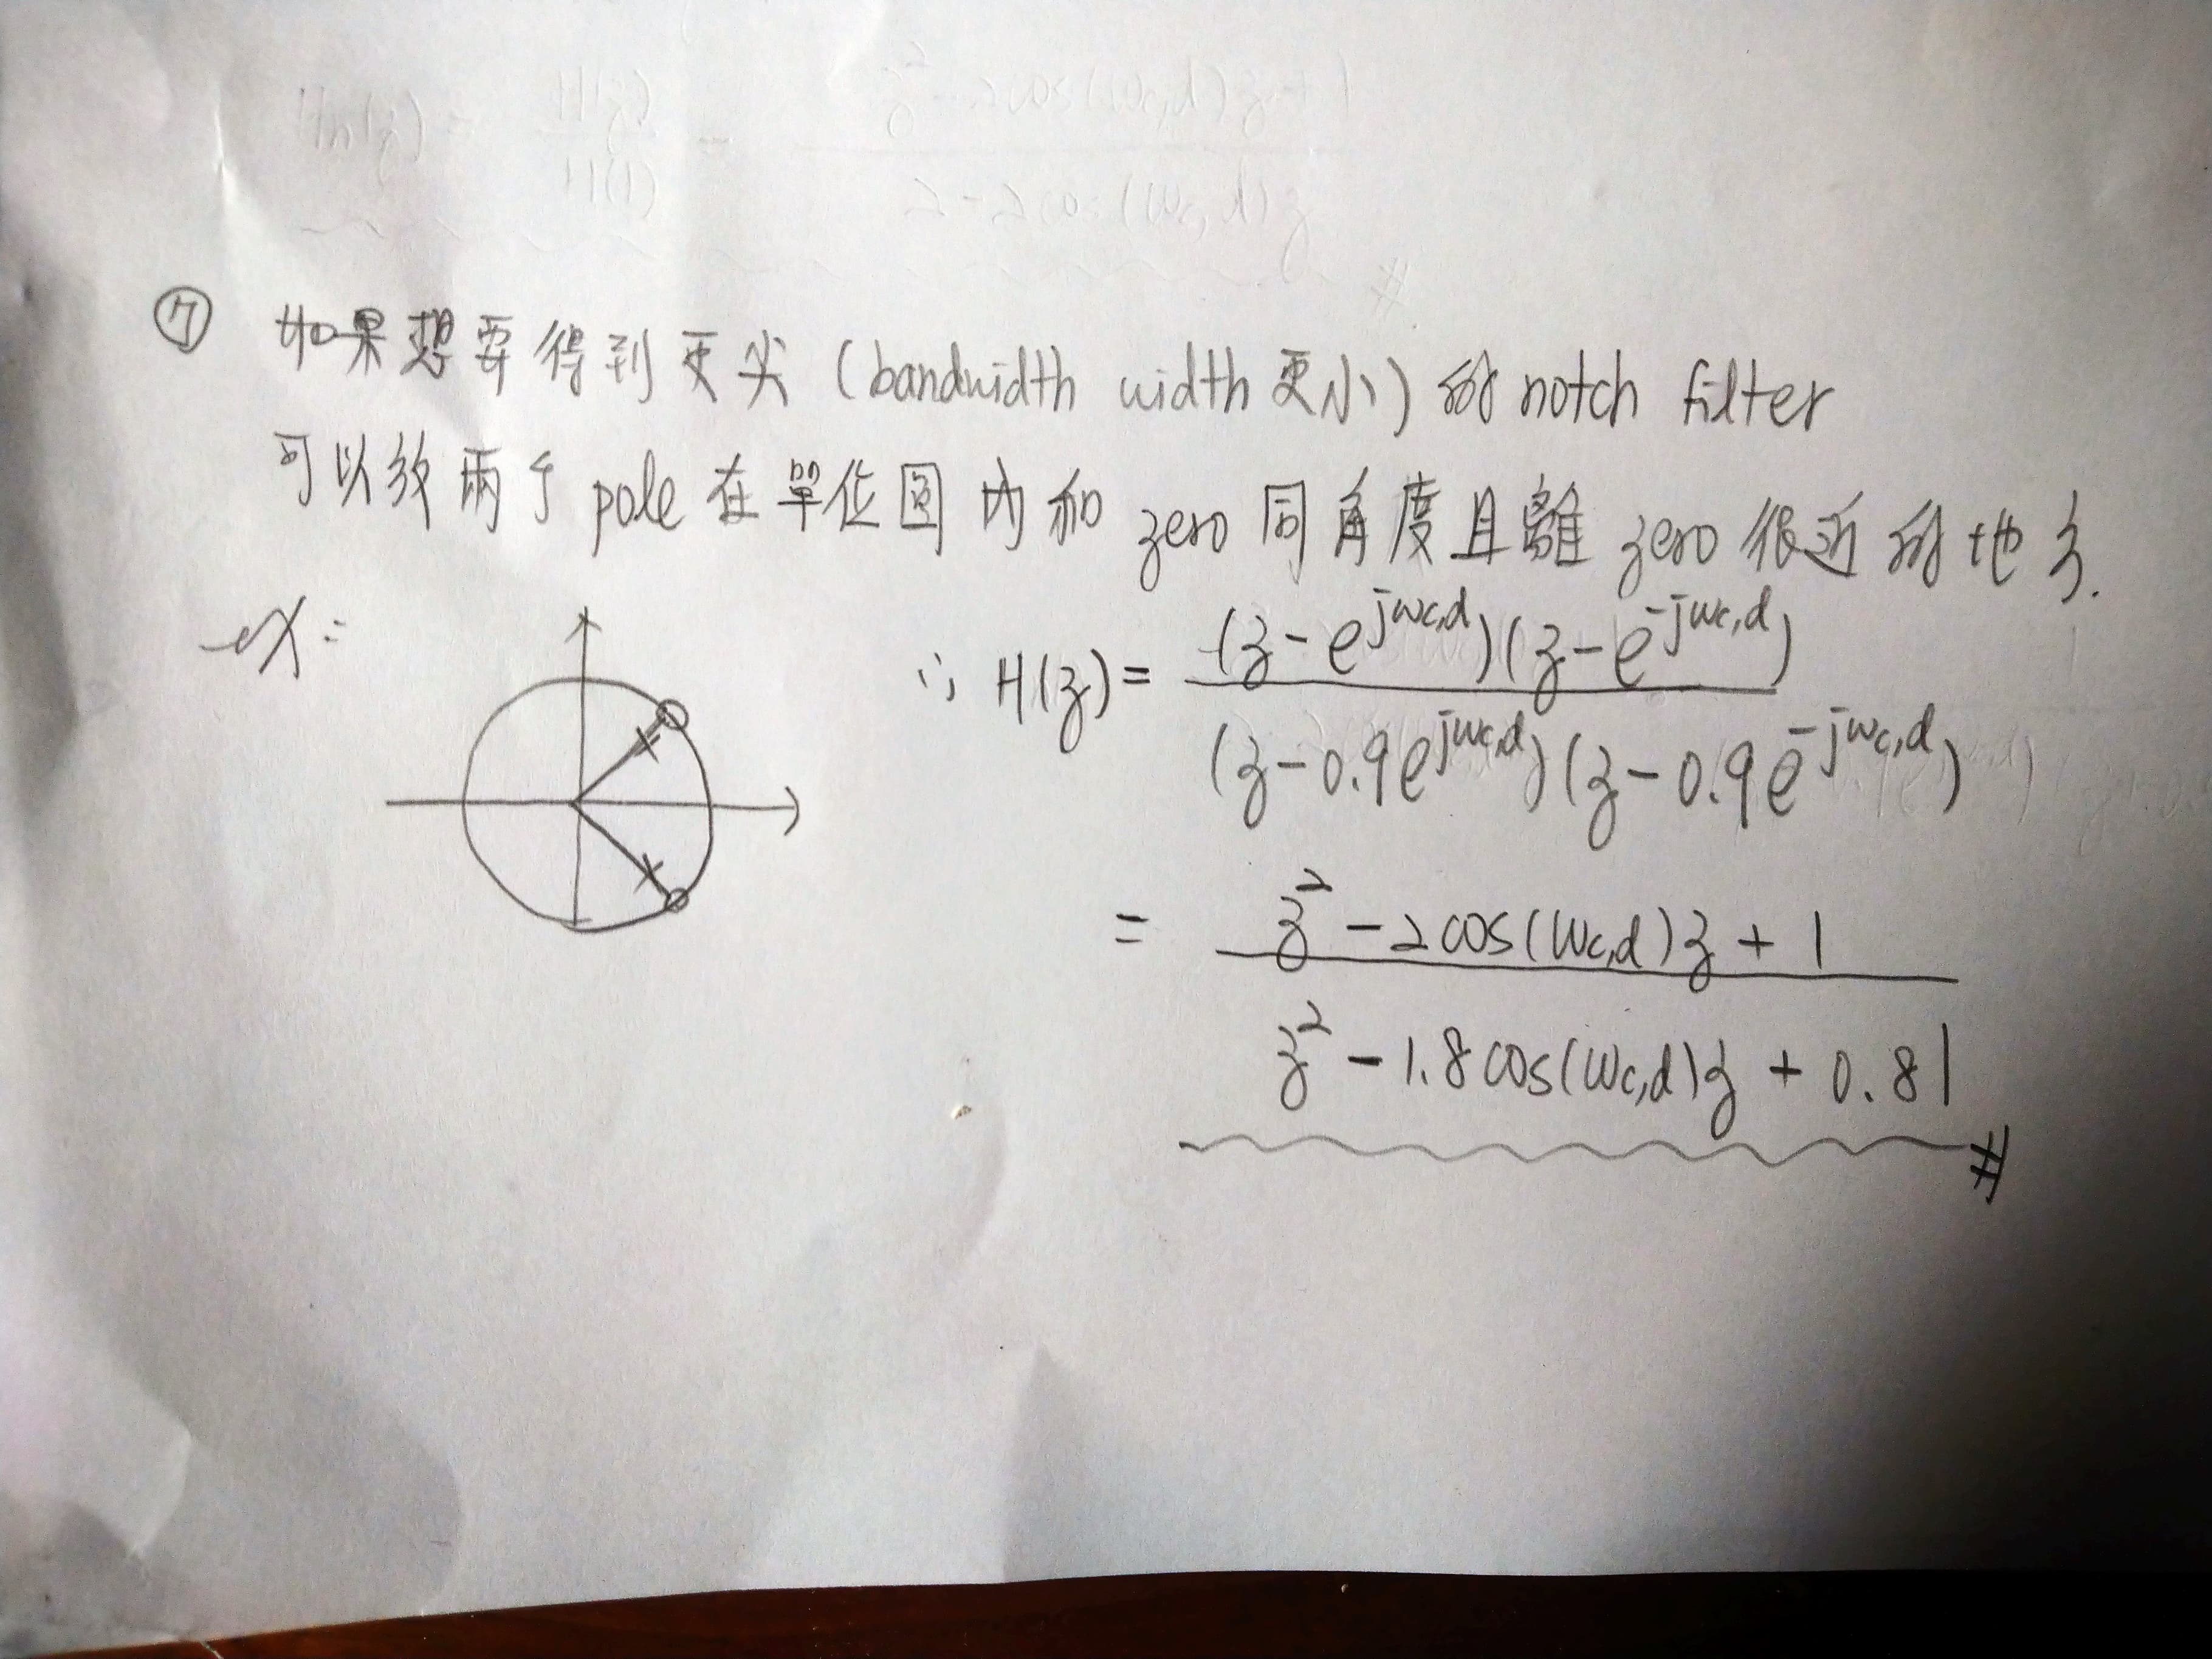 ⑦ 如果想要得到更尖 (bandwidth width 更小) 的 notch filter
可以放兩个 pole 在單位圓內和 zero 同角度且離 zero 很近的地方.
ex:
∴ H(z) = (z - e^{jωc,d})(z - e^{-jωc,d}) / (z - 0.9e^{jωc,d})(z - 0.9e^{-jωc,d})
= z² - 2cos(ωc,d)z + 1 / z² - 1.8cos(ωc,d)z + 0.81 #